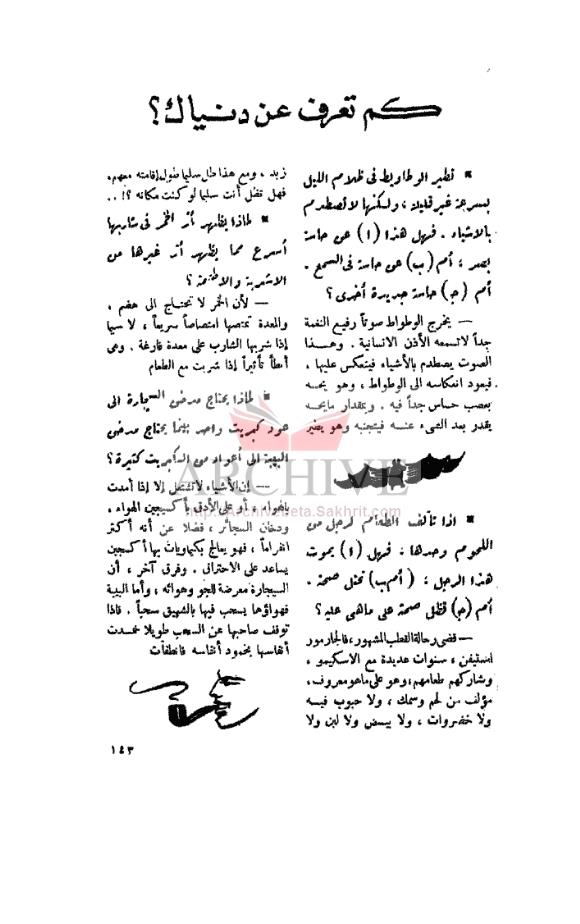 كم تعرف عن دنياك؟
▪ تطير الوطاويط فى ظلام الليل
بسرعة غير قليلة ، ولكنها لا تصطدم
بالأشياء . فهل هذا (ا) عن حاسة
بصر ، أم (ب) عن حاسة فى السمع .
أم (ج) حاسة جديدة أخرى ؟
— يخرج الوطواط صوتاً رفيع النغمة
جداً لاتسمعه الأذن الانسانية . وهـذا
الصوت يصطدم بالأشياء فينعكس عليها ،
فيعود انعكاسه الى الوطواط ، وهو يحسه
بعصب حساس جداً فيه . وبمقدار مايحسه
يقدر بعد الشىء عنـه فيتجنبه وهو يطير
▪ اذا تألف الطعام لرجل من
اللحوم وحدها ، فهل (ا) يموت
هذا الرجل ، (أم ب) تختل صحته .
أم (ج) تظل صحته على ماهى عليه ؟
— قضى رحالة القطب المشهور ، فالجارمور
استيفن ، سنوات عديدة مع الاسكيمو ،
وشاركهم طعامهم ، وهو على ماهو معروف ،
مؤلف من لحم وسمك ، ولا حبوب فيـه
ولا خضروات ، ولا بيـض ولا لبن ولا
زبد ، ومع هذا ظل سليما طول إقامته معهم .
فهل تظل أنت سليما لو كنت مكانه ؟! ..
▪ لماذا يظهر أثر الخمر فى شاربها
أسرع مما يظهر أثر غيرها من
الاشربة والاطعمة ؟
— لأن الخمر لا تحتـاج الى هضم ،
والمعدة تمتصها امتصاصاً سريعاً ، لا سيما
إذا شربها الشارب على معدة فارغة . وهى
أبطأ تأثيراً إذا شربت مع الطعام
▪ لماذا يحتاج مدخن السيجارة الى
عود كبريت واحد بينما يحتاج مدخن
البيبة الى أعواد من الكبريت كثيرة ؟
— إن الأشياء لاتشتعل إلا إذا أمدت
بالهواء ، أو على الأدق بأكسيجين الهواء .
ودخان السجائر ، فضلا عن أنه أكثر
انفراماً ، فهو يعالج بكيماويات بها أكسجين
يساعد على الاحتراق . وفرق آخر ، أن
السيجارة معرضة للجو وهوائه ، وأما البيبة
فهواؤها يسحب فيها بالشهيق سحباً . فاذا
توقف صاحبها عن السحب طويلا خمـدت
أنفاسها بخمود أنفاسه فانطفأت
ARCHIVE
http://Archivebeta.Sakhrit.com
١٤٣